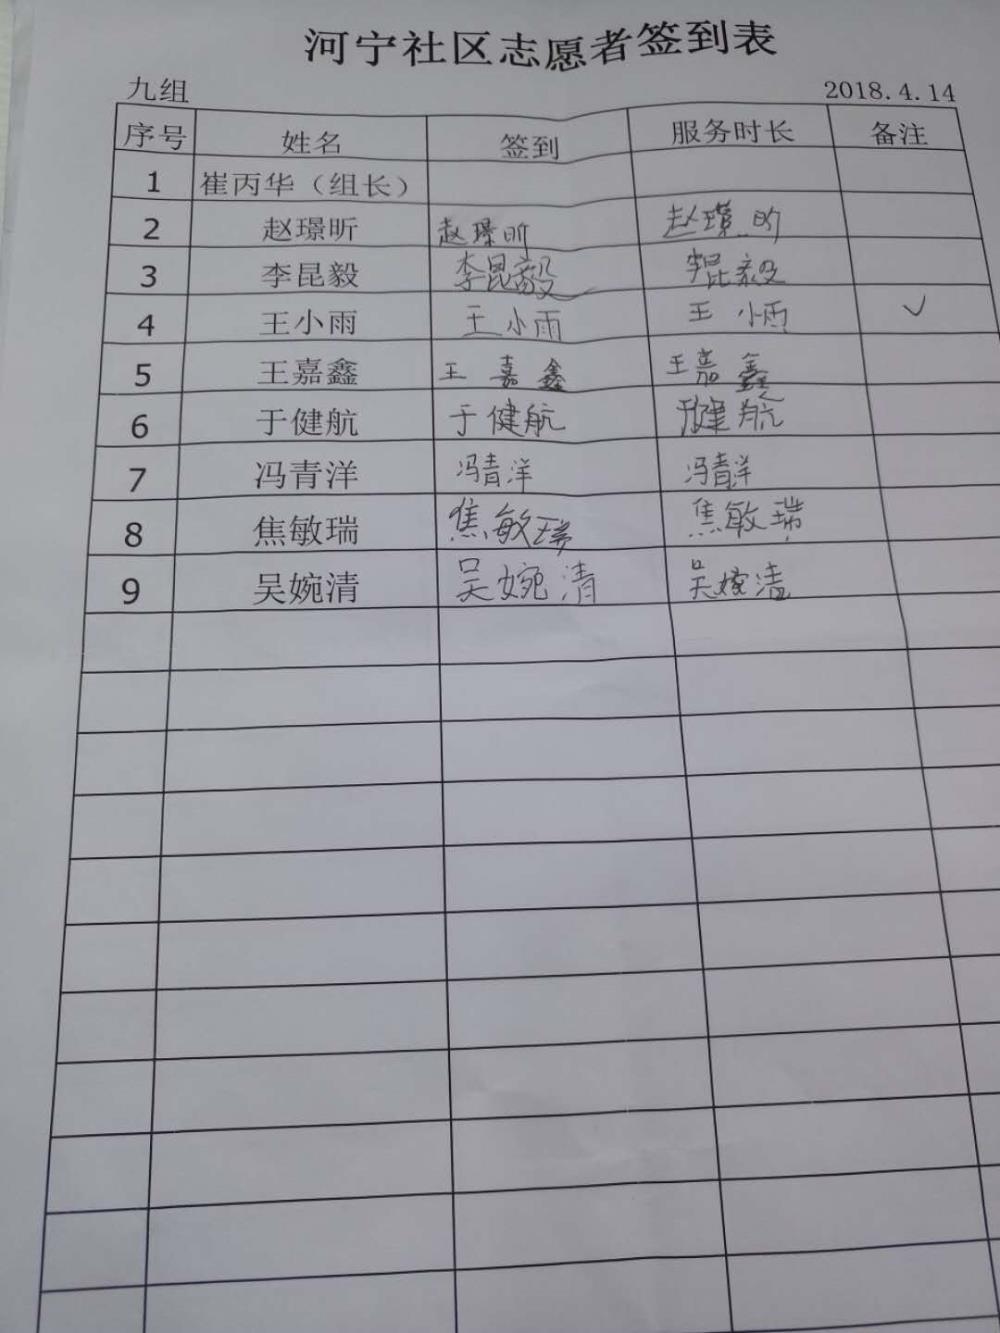 河宁社区志愿者签到表
九组 2018.4.14
序号 姓名 签到 服务时长 备注
1 崔丙华（组长）
2 赵璟昕 赵璟昕 赵璟昕
3 李昆毅 李昆毅 李昆毅
4 王小雨 王小雨 王小雨 ✓
5 王嘉鑫 王嘉鑫 王嘉鑫
6 于健航 于健航 于健航
7 冯青洋 冯青洋 冯青洋
8 焦敏瑞 焦敏瑞 焦敏瑞
9 吴婉清 吴婉清 吴婉清